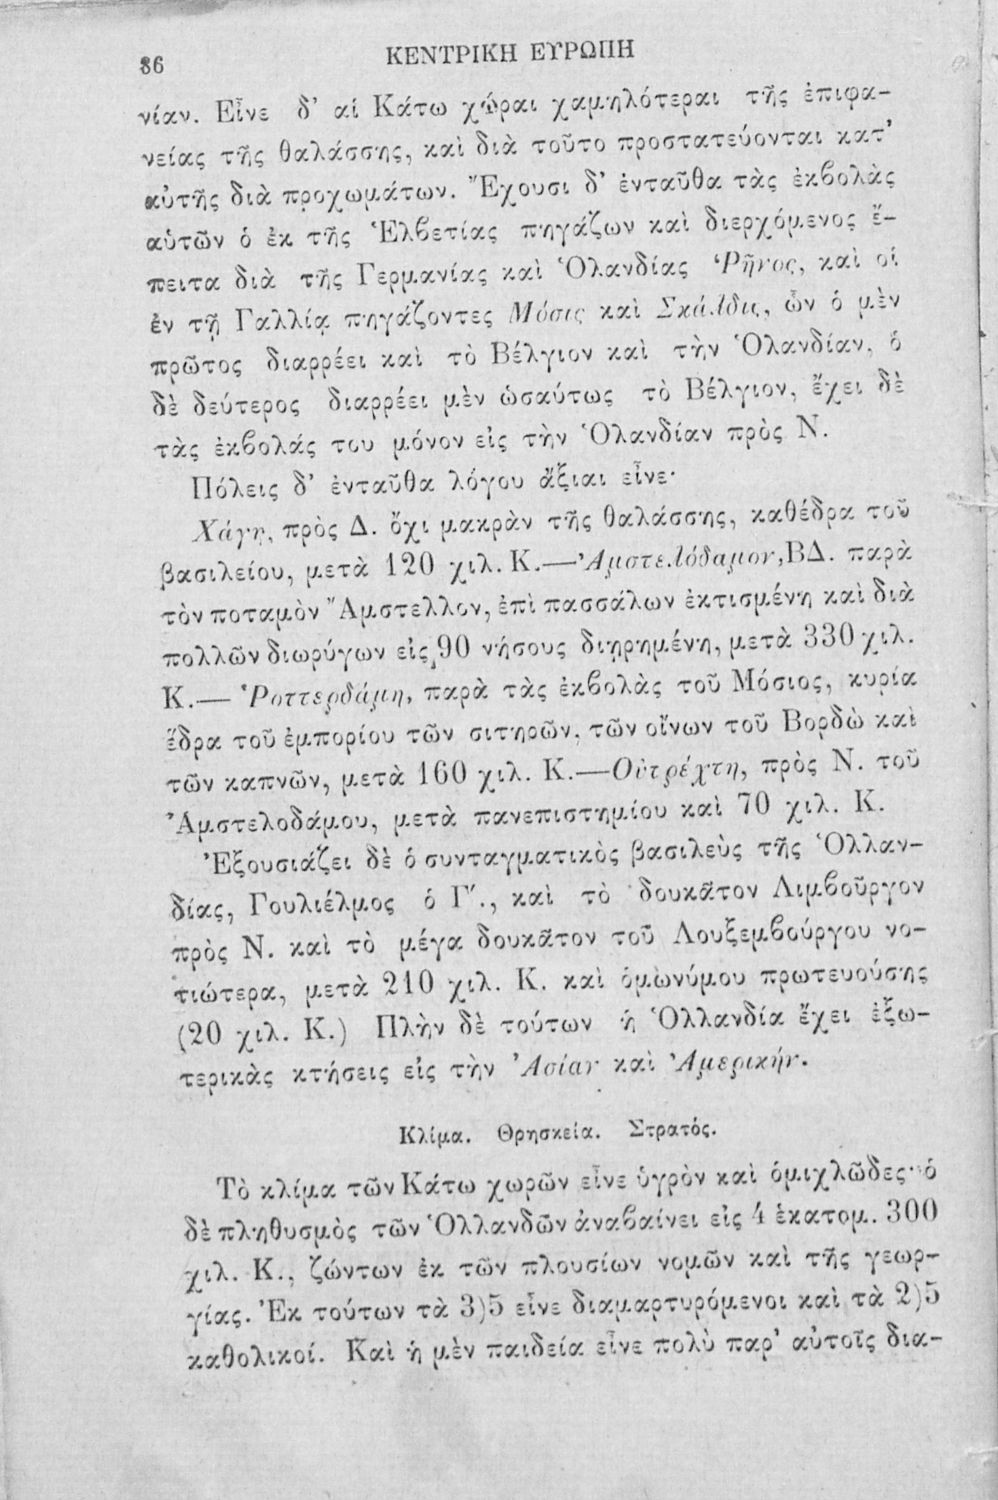 86
ΚΕΝΤΡΙΚΗ ΕΥΡΩΠΗ
νίαν. Εἶνε δ' αἱ Κάτω χῶραι χαμηλότεραι τῆς ἐπιφα-
νείας τῆς θαλάσσης, καὶ διὰ τοῦτο προστατεύονται κατ'
αὐτῆς διὰ προχωμάτων. Ἔχουσι δ' ἐνταῦθα τὰς ἐκβολὰς
αὑτῶν ὁ ἐκ τῆς Ἑλβετίας πηγάζων καὶ διερχόμενος ἔ-
πειτα διὰ τῆς Γερμανίας καὶ Ὁλανδίας Ῥῆνος, καὶ οἱ
ἐν τῇ Γαλλίᾳ πηγάζοντες Μόσις καὶ Σκάλδις, ὧν ὁ μὲν
πρῶτος διαρρέει καὶ τὸ Βέλγιον καὶ τὴν Ὁλανδίαν, ὁ
δὲ δεύτερος διαρρέει μὲν ὡσαύτως τὸ Βέλγιον, ἔχει δὲ
τὰς ἐκβολάς του μόνον εἰς τὴν Ὁλανδίαν πρὸς Ν.
Πόλεις δ' ἐνταῦθα λόγου ἄξιαι εἶνε·
Χάγη, πρὸς Δ. ὄχι μακρὰν τῆς θαλάσσης, καθέδρα τοῦ
βασιλείου, μετὰ 120 χιλ. Κ.—Ἀμστελόδαμον, ΒΔ. παρὰ
τὸν ποταμὸν Ἄμστελλον, ἐπὶ πασσάλων ἐκτισμένη καὶ διὰ
πολλῶν διωρύγων εἰς 90 νήσους διῃρημένη, μετὰ 330 χιλ.
Κ.— Ῥοττερδάμη, παρὰ τὰς ἐκβολὰς τοῦ Μόσιος, κυρία
ἕδρα τοῦ ἐμπορίου τῶν σιτηρῶν, τῶν οἴνων τοῦ Βορδὼ καὶ
τῶν καπνῶν, μετὰ 160 χιλ. Κ.—Οὐτρέχτη, πρὸς Ν. τοῦ
Ἀμστελοδάμου, μετὰ πανεπιστημίου καὶ 70 χιλ. Κ.
Ἐξουσιάζει δὲ ὁ συνταγματικὸς βασιλεὺς τῆς Ὁλλαν-
δίας, Γουλιέλμος ὁ Γ΄., καὶ τὸ δουκᾶτον Λιμβοῦργον
πρὸς Ν. καὶ τὸ μέγα δουκᾶτον τοῦ Λουξεμβούργου νο-
τιώτερα, μετὰ 210 χιλ. Κ. καὶ ὁμωνύμου πρωτευούσης
(20 χιλ. Κ.) Πλὴν δὲ τούτων ἡ Ὁλλανδία ἔχει ἐξω-
τερικὰς κτήσεις εἰς τὴν Ἀσίαν καὶ Ἀμερικήν.
Κλίμα. Θρησκεία. Στρατός.
Τὸ κλίμα τῶν Κάτω χωρῶν εἶνε ὑγρὸν καὶ ὁμιχλῶδες· ὁ
δὲ πληθυσμὸς τῶν Ὁλλανδῶν ἀναβαίνει εἰς 4 ἑκατομ. 300
χιλ. Κ., ζώντων ἐκ τῶν πλουσίων νομῶν καὶ τῆς γεωρ-
γίας. Ἐκ τούτων τὰ 3)5 εἶνε διαμαρτυρόμενοι καὶ τὰ 2)5
καθολικοί. Καὶ ἡ μὲν παιδεία εἶνε πολὺ παρ' αὐτοῖς δια-